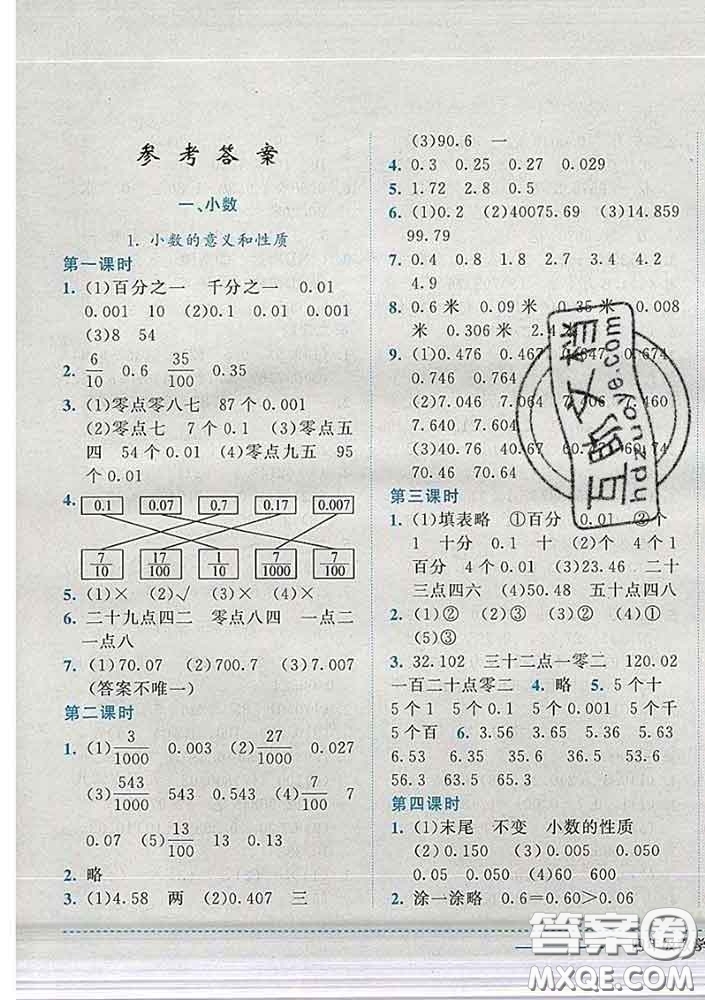 参考答案
一、小数
1. 小数的意义和性质
第一课时
1. (1)百分之一 千分之一 0.01
0.001 10 (2)0.1 0.01 0.001
(3)8 54
2. 6/10 0.6 35/100 0.35
3. (1)零点零八七 87个0.001
(2)零点七 7个0.1 (3)零点五
四 54个0.01 (4)零点九五 95
个0.01
4. 0.1 0.07 0.7 0.17 0.007
7/10 17/100 1/10 7/1000 7/100
5. (1)× (2)√ (3)× (4)×
6. 二十九点四二 零点八四 一点二
一点八
7. (1)70.07 (2)700.7 (3)7.007
(答案不唯一)
第二课时
1. (1)3/1000 0.003 (2)27/1000 0.027
(3)543/1000 543 0.543 (4)7/100 7
0.07 (5)13/100 13 0.13
2. 略
3. (1)4.58 两 (2)0.407 三
(3)90.6 一
4. 0.3 0.25 0.27 0.029
5. 1.72 2.8 0.5
6. (1)0.2 (2)40075.69 (3)14.859
99.79
7. 0.4 0.8 2.7 3.4 4.2
4.9
8. 0.6米 0.09米 0.35米 0.008
米 0.306米 2.4
9. (1)0.476 0.467 0.647 0.674
0.746 0.764
(2)7.046 7.064 7.406 7.460
7.604 7.640
(3)40.76 40.67 60.
70.46 70.64
第三课时
1. (1)填表略 ①百分 0.01 ②个
1 十分 0.1 (2)个 4个1
百分 4个0.01 (3)23.46 二十
三点四六 50.48 五十点四八
2. (1)② (2)③ (3)② (4)①
(5)③
3. 32.102 三十二点一零二 120.02
一百二十点零二 4. 略 5. 5个十
5个1 5个0.1 5个0.01 5个千
5个百 6. 3.56 3.65 5.36 5.63
6.53 6.35 35.6 36.5 53.6
56.3 63.5 65.3
第四课时
1. (1)末尾 不变 小数的性质
(2)0.150 (3)0.005 0.050
0.500 (4)60 600
2. 涂一涂略 0.6=0.60>0.06
互助文档
hdzuoye.com
答案卷
MXQE.COM